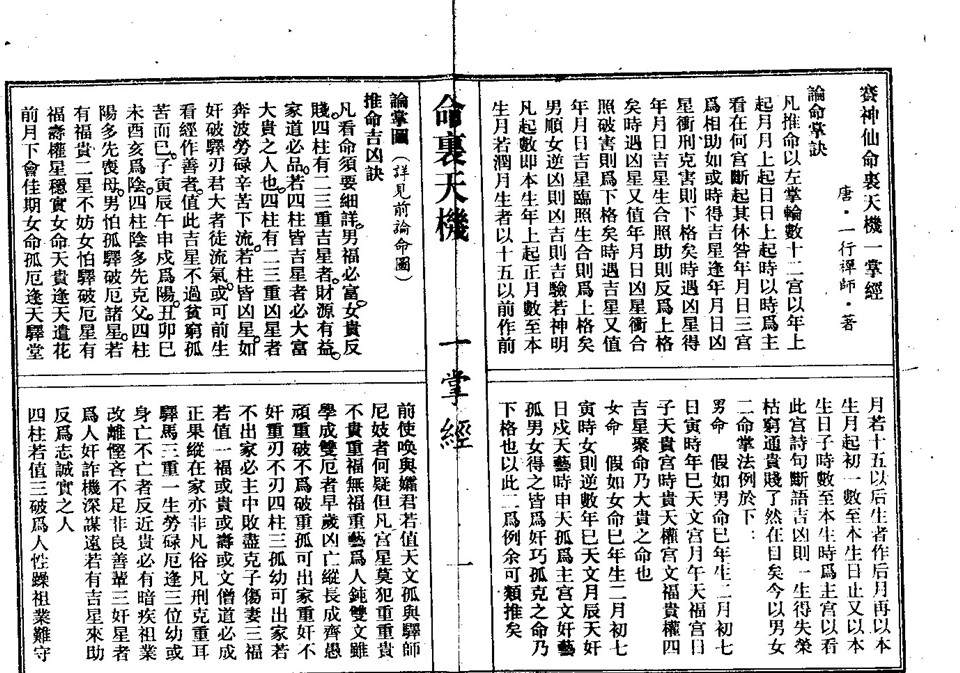 賽神仙命裏天機一掌經
唐·一行禪師·著
論命掌訣
凡推命以左掌輪數十二宮以年上
起月月上起日日上起時以時爲主
看在何宮斷起其休咎年月日三宮
爲相助如或時得吉星逢年月日凶
星衝刑克害則下格矣時遇凶星得
年月日吉星生合照助則反爲上格
矣時遇凶星又值年月日凶星衝合
照破害則爲下格矣時遇吉星又值
年月日吉星臨照生合則爲上格矣
男順女逆凶則凶吉則吉驗若神明
凡起數即本生年上起正月數至本
生月若潤月生者以十五以前作前
月若十五以后生者作后月再以本
生月起初一數至本生日止又以本
生日子時數至本生時爲主宮以看
此宮詩句斷語吉凶則一生得失榮
枯窮通貴賤了然在目矣今以男女
二命掌法例於下：
男命 假如男命巳年生二月初七
日寅時年巳天文宮月午天福宮日
子天貴宮時貴天權宮文福貴權四
吉星聚命乃大貴之命也
女命 假如女命巳年生二月初七
寅時女則逆數年巳天文月辰天奸
日戌天藝時申天孤爲主宮文奸藝
孤男女得之皆爲奸巧孤克之命乃
下格也以此二爲例余可類推矣
命裏天機 一掌經 一
論掌圖（詳見前論命圖）
推命吉凶訣
凡看命須要細詳。男福必富。女貴反
賤。四柱有二三重吉星者。財源有益。
家道必品。若四柱皆吉星者必大富
大貴之人也。四柱有二三重凶星者
奔波勞碌辛苦下流。若柱皆凶星。如
奸破驛刃君大者徒流氣。或可前生
看經作善者。值此吉星不過貧窮孤
苦而已。子寅辰午申戌爲陽。丑卯巳
未酉亥爲陰。四柱陰多先克父。四柱
陽多先喪母。男怕孤驛破厄諸星。若
有福貴二星不妨女怕驛破厄星有
福壽權星穩實女命天貴逢天遣花
前月下會佳期女命孤厄逢天驛堂
前使喚與孀君若值天文孤與驛師
尼妓者何疑但凡宮星莫犯重重貴
不貴重福無福重藝爲人鈍雙文雖
學成雙厄者早歲凶亡縱長成齊愚
頑重破不爲破重孤可出家重奸不
奸重刃不刃四柱三孤幼可出家若
不出家必主中敗盡克子傷妻三福
若值一福或貴或壽或文僧道必成
正果縱在家亦非凡俗凡刑克重耳
驛馬三重一生勞碌厄逢三位幼或
身亡不亡者反近貴必有暗疾祖業
改離慳吝不足非良善輩三奸星者
爲人奸詐機深謀遠若有吉星來助
反爲志誠實之人
四柱若值三破爲人性躁祖業難守